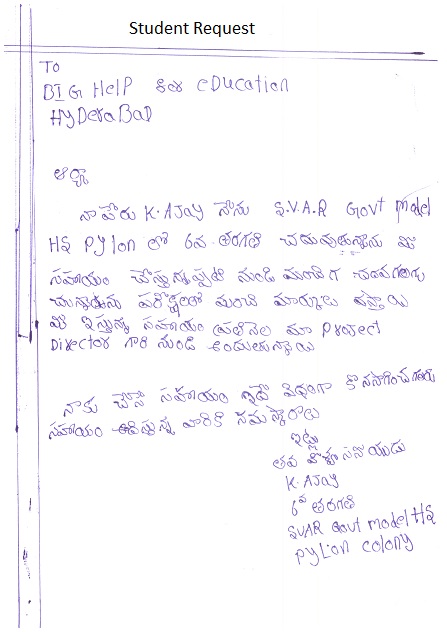 Student Request
To
BIG HelP for eDucation
HyDeraBaD
ఆర్యా
నా పేరు K. AJay నేను S.V.A.R Govt model
HS PYlon లో 6వ తరగతి చదువుతున్నాను మీ
సహాయం చేస్తున్నప్పటి నుండి మంచిగ
పరీక్షలలో మంచి మార్కులు వస్తాయి
మీ ఇస్తున్న సహాయం ప్రతినెల మా Project
Director గారి నుండి అందుతున్నాయి
నాకు చేసే సహాయం ఇదే విధంగా
సహాయం వారికి నమస్కారాలు
ఇట్లు
K. AJay
6వ తరగతి
SVAR Govt model HS
PyLon colony